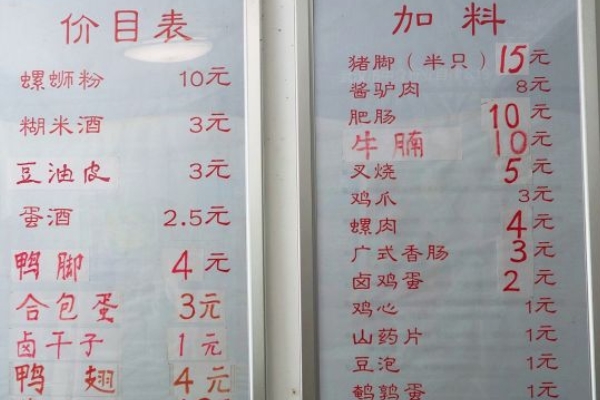 价目表
螺蛳粉 10元
糊米酒 3元
豆油皮 3元
蛋酒 2.5元
鸭脚 4元
合包蛋 3元
卤干子 1元
鸭翅 4元
加料
猪脚（半只） 15元
酱驴肉 8元
肥肠 10元
牛腩 10元
叉烧 5元
鸡爪 3元
螺肉 4元
广式香肠 3元
卤鸡蛋 2元
鸡心 1元
山药片 1元
豆泡 1元
鹌鹑蛋 1元